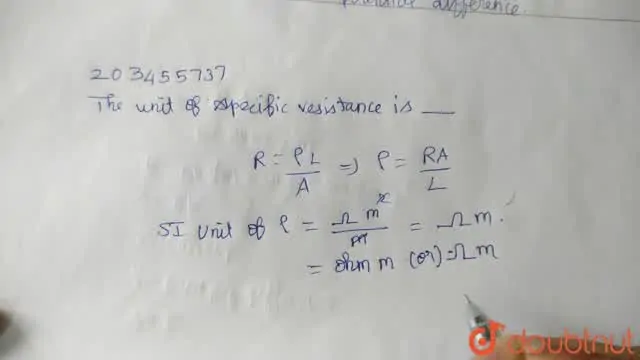 potential difference.
203455737
The unit of specific resistance is __
R = ρL/A ⇒ ρ = RA/L
SI unit of ρ = Ω m²/m = Ω m.
= ohm m (or) = Ω m
doubtnut